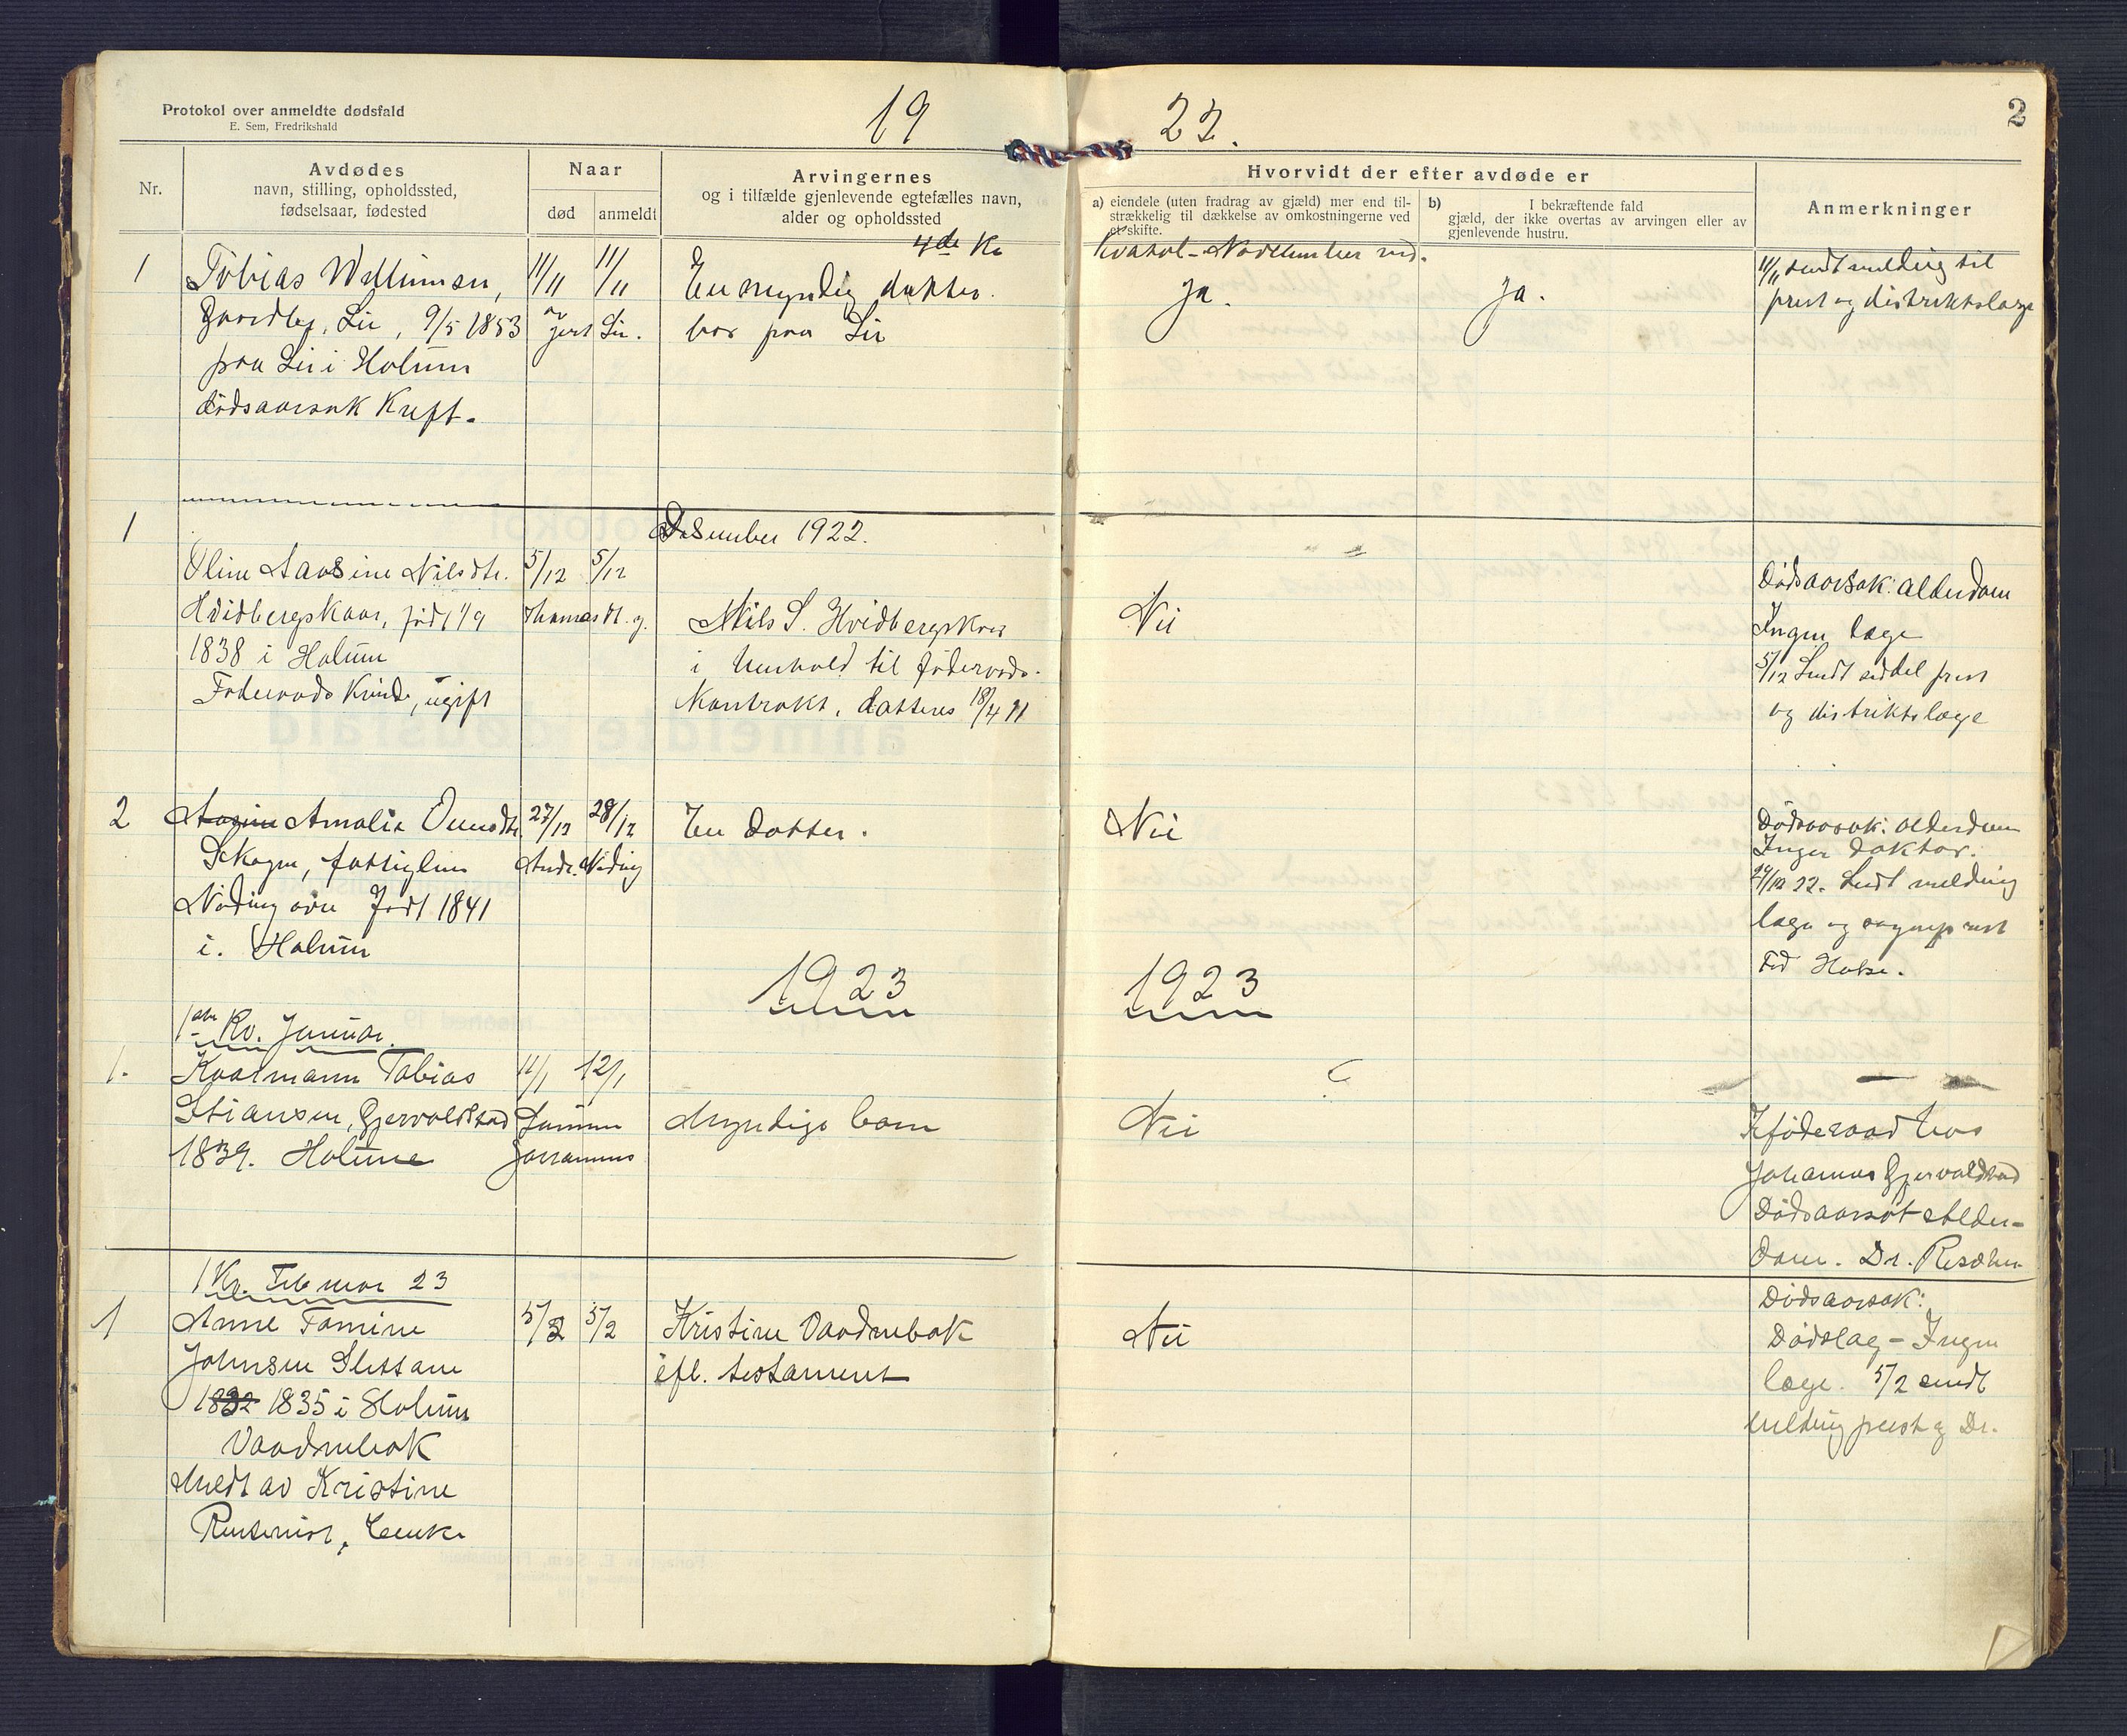 Protokol over anmeldte dødsfald
E. Sem, Fredrikshald
19 22.
2
Nr.
Avdødes
navn, stilling, opholdssted,
fødselsaar, fødested
Naar
død anmeldt
Arvingernes
og i tilfælde gjenlevende egtefælles navn,
alder og opholdssted
Hvorvidt der efter avdøde er
a) eiendele (uten fradrag av gjæld) mer end til-
strækkelig til dækkelse av omkostningerne ved
et skifte.
b) I bekræftende fald
gjæld, der ikke overtas av arvingen eller av
gjenlevende hustru.
Anmerkninger
4de Kv
1
Tobias Willumsen,
Gaardbr. Lie, 9/5 1853
paa Lie i Holum
dødsaarsak Kreft.
11/11 11/11
Lie.
En myndig datter
bor paa Lie
Ja.
Ja.
11/11 sendt melding til
prest og distriktslæge
Desember 1922.
1
Oline Aasine Nilsdtr.
Hvidbergskaar, født 1/9
1838 i Holum
Føderaads Kvinde, ugift
5/12 5/12
Nils S. Hvidbergskaar
i henhold til føderaads-
Kontrakt, datteres 18/4 11
Nei
Dødsaarsak: Alderdom
Ingen læge
5/12 Sendt seddel prest
og distriktslæge
2
Amalia
Skogen, fattiglem
Nøding øvre Født 1841
i. Holum
27/12 28/12
Andr. Nøding
En datter.
Nei
Dødsaarsak: Alderdom
Ingen doktor.
29/12 22. Sendt melding
læge og sogneprest
1923 1923
1ste Kv. Januar.
1.
Kaalmann Tobias
Stiansen, Gjervoldstad
1839. Holume
11/1 12/1
Myndige barn
Nei
I føderaad hos
Johannes Gjervoldstad
Dødsaarsak Alder-
dom. Dr.
1 Kv. Februar 23
1
Anne Tomine
Johnsen Slettane
1832 1835 i Holum
Vaadnebak
Meldt av Kristine
5/2 5/2
Kristine Vaadnebak
efl. testament
Nei
Dødsaarsak:
Dødslag - Ingen
læge. 5/2 sendt
melding prest og Dr.